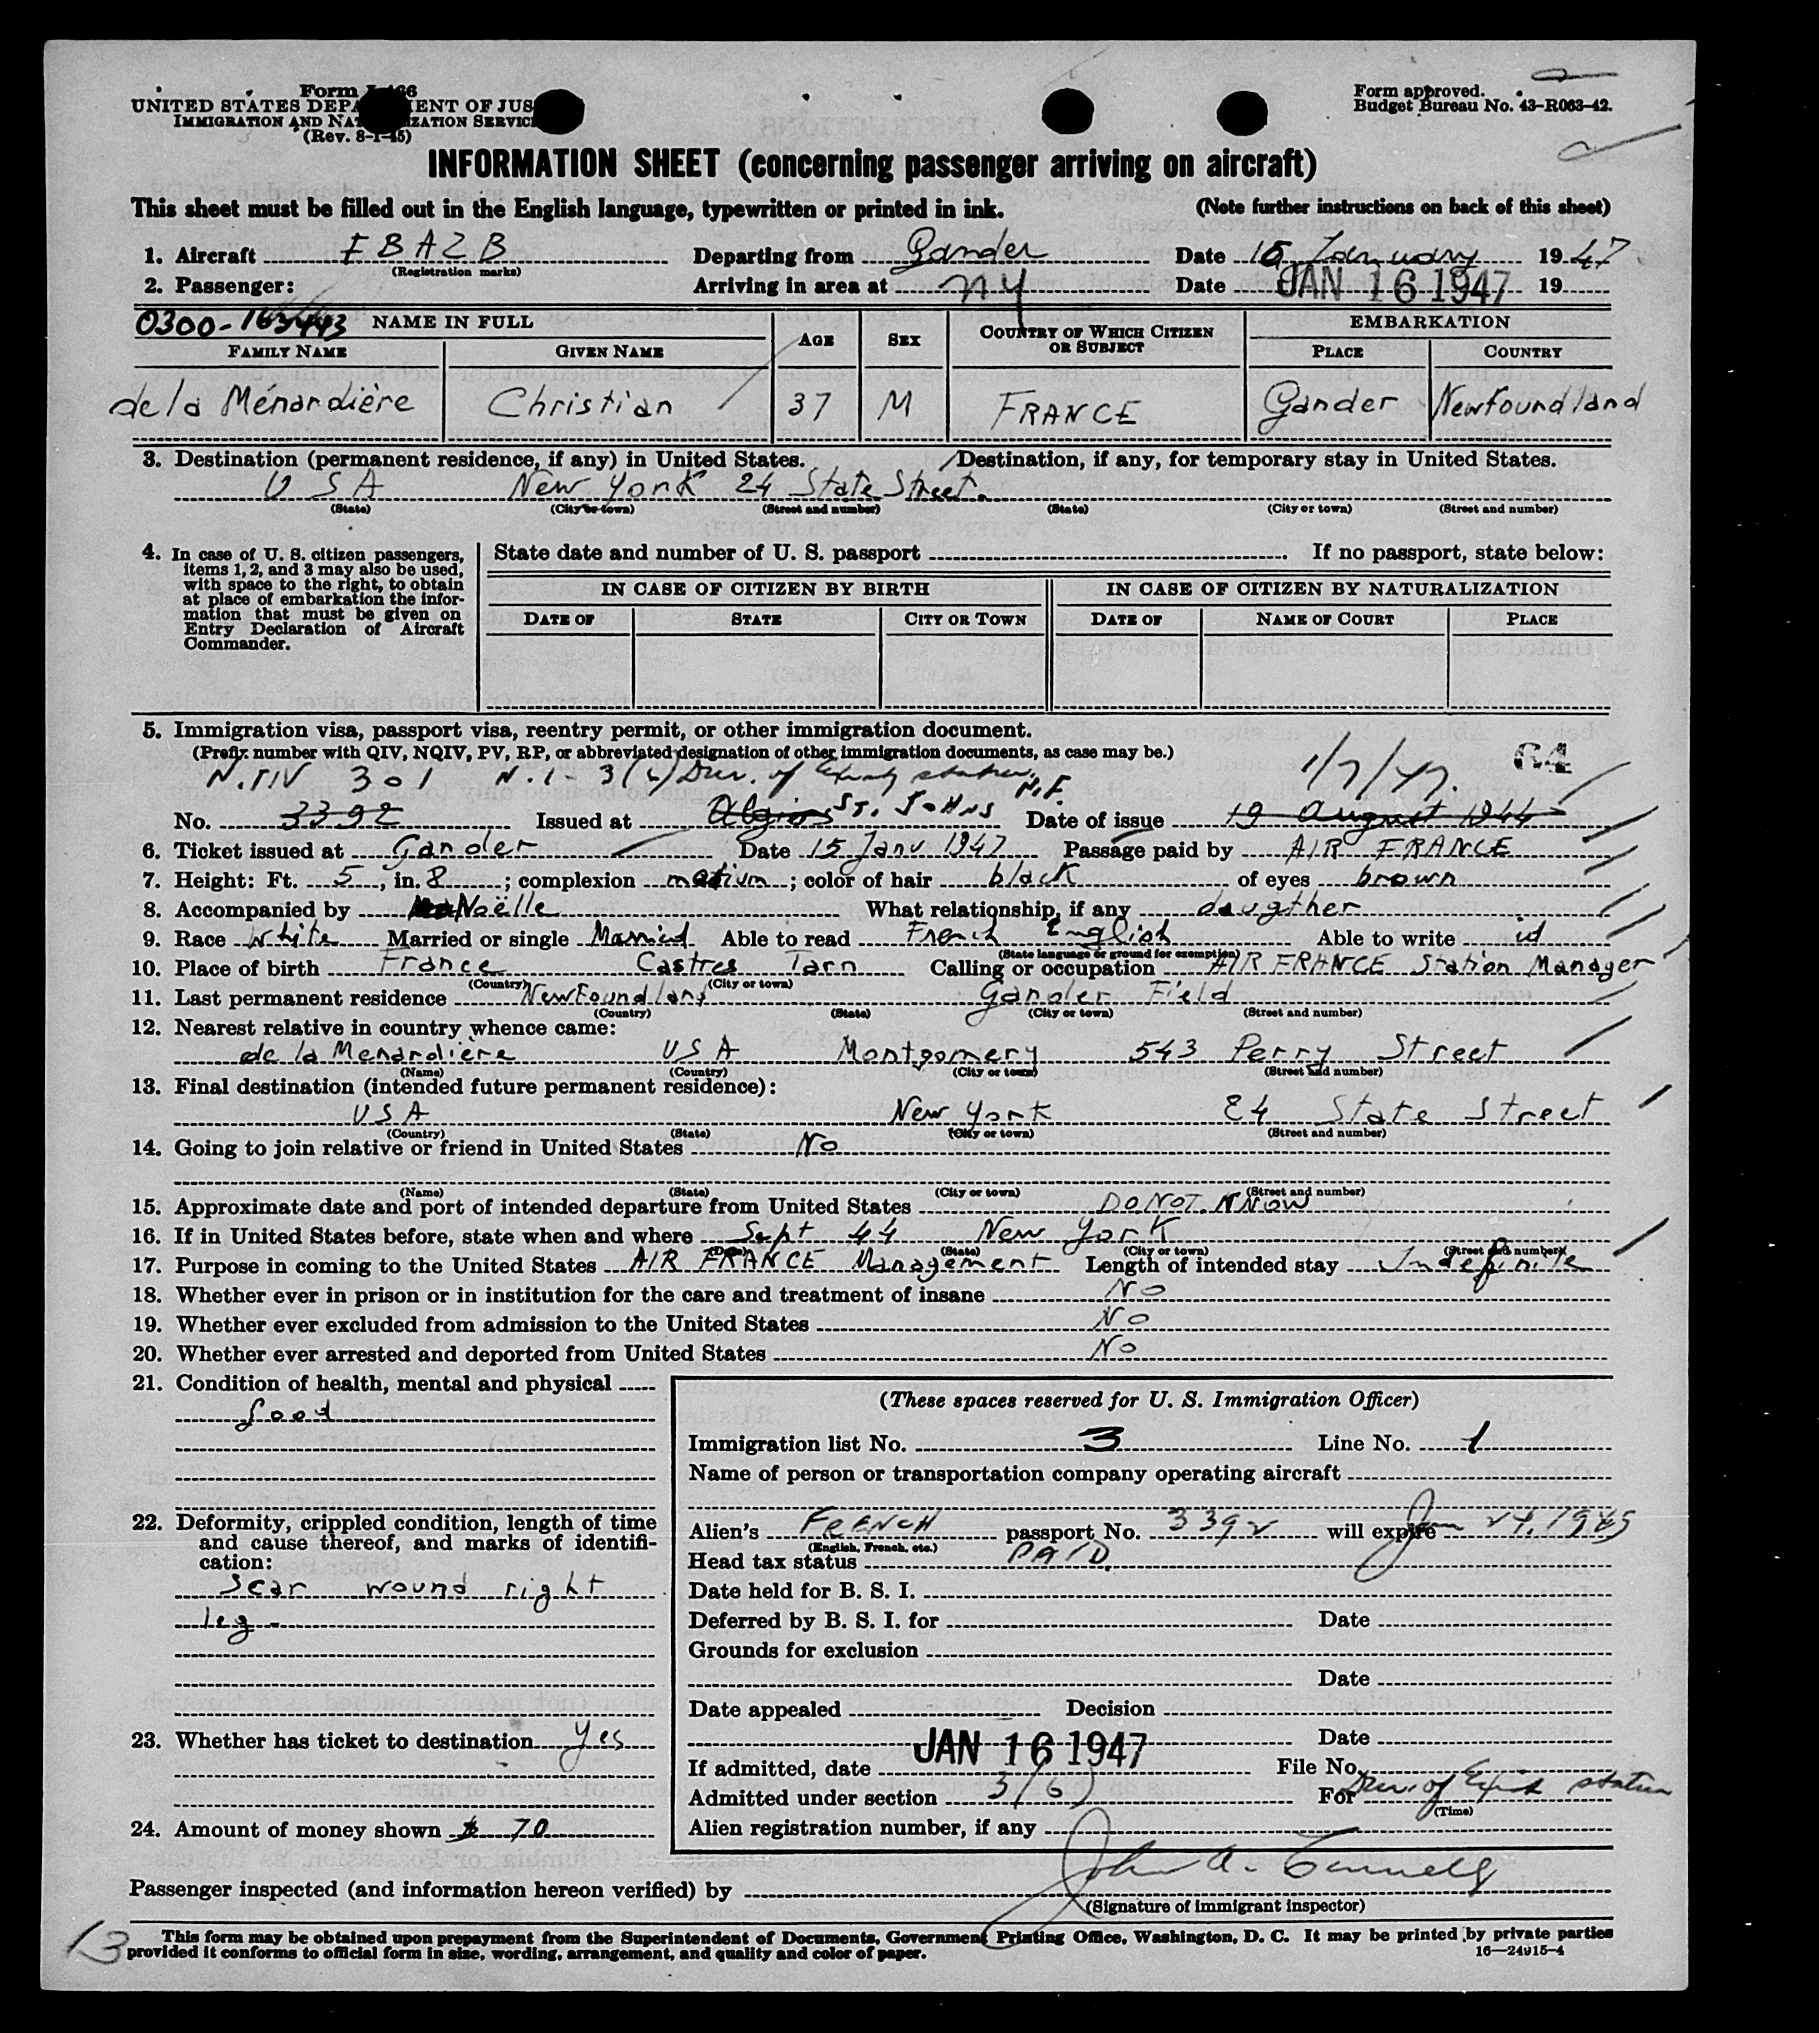 Form I-466
UNITED STATES DEPARTMENT OF JUSTICE
IMMIGRATION AND NATURALIZATION SERVICE
(Rev. 8-1-45)
Form approved.
Budget Bureau No. 43-R063-42.
INFORMATION SHEET (concerning passenger arriving on aircraft)
This sheet must be filled out in the English language, typewritten or printed in ink. (Note further instructions on back of this sheet)
1. Aircraft FBAZB Departing from Gander Date 15 January 1947
(Registration marks)
2. Passenger: Arriving in area at NY Date JAN 16 1947 19
0300-163443 NAME IN FULL AGE SEX COUNTRY OF WHICH CITIZEN OR SUBJECT EMBARKATION
FAMILY NAME GIVEN NAME PLACE COUNTRY
de la Ménardière Christian 37 M FRANCE Gander Newfoundland
3. Destination (permanent residence, if any) in United States. Destination, if any, for temporary stay in United States.
USA New York 24 State Street.
(State) (City or town) (Street and number) (State) (City or town) (Street and number)
4. In case of U. S. citizen passengers, items 1, 2, and 3 may also be used, with space to the right, to obtain at place of embarkation the information that must be given on Entry Declaration of Aircraft Commander.
State date and number of U. S. passport . If no passport, state below:
IN CASE OF CITIZEN BY BIRTH IN CASE OF CITIZEN BY NATURALIZATION
DATE OF STATE CITY OR TOWN DATE OF NAME OF COURT PLACE
5. Immigration visa, passport visa, reentry permit, or other immigration document.
(Prefix number with QIV, NQIV, PV, RP, or abbreviated designation of other immigration documents, as case may be.)
301 3(6) Dur. of status 1/7/47. 64
N.F.
No. 3392 Issued at Algiers ST. JOHNS Date of issue 19 August 1944
6. Ticket issued at Gander Date 15 Janv 1947 Passage paid by AIR FRANCE
7. Height: Ft. 5, in. 8; complexion medium; color of hair black of eyes brown
8. Accompanied by Noëlle What relationship, if any daugther
9. Race White Married or single Married Able to read French English Able to write id
(State language or ground for exemption)
10. Place of birth France Castres Tarn Calling or occupation AIR FRANCE Station Manager
(Country) (City or town)
11. Last permanent residence Newfoundland Gander Field
(Country) (State) (City or town) (Street and number)
12. Nearest relative in country whence came:
de la Menardière USA Montgomery 543 Perry Street
(Name) (Country) (City or town) (Street and number)
13. Final destination (intended future permanent residence):
USA New York 24 State Street
(Country) (State) (City or town) (Street and number)
14. Going to join relative or friend in United States No
(Name) (State) (City or town) (Street and number)
15. Approximate date and port of intended departure from United States DO NOT KNOW
16. If in United States before, state when and where Sept 44 New York
(Date) (State) (City or town) (Street and number)
17. Purpose in coming to the United States AIR FRANCE Management Length of intended stay Indefinite
18. Whether ever in prison or in institution for the care and treatment of insane No
19. Whether ever excluded from admission to the United States No
20. Whether ever arrested and deported from United States No
21. Condition of health, mental and physical
good
22. Deformity, crippled condition, length of time
and cause thereof, and marks of identifi-
cation:
scar wound right
leg -
23. Whether has ticket to destination yes
24. Amount of money shown $ 70
(These spaces reserved for U. S. Immigration Officer)
Immigration list No. 3 Line No. 1
Name of person or transportation company operating aircraft
Alien's FRENCH passport No. 3392 will expire Jan 24, 1949
(English, French, etc.)
Head tax status PAID.
Date held for B. S. I.
Deferred by B. S. I. for Date
Grounds for exclusion
Date
Date appealed Decision
Date
If admitted, date JAN 16 1947 File No.
Admitted under section 3(6) For Dur. of status
(Time)
Alien registration number, if any
Passenger inspected (and information hereon verified) by John A.
(Signature of immigrant inspector)
13
This form may be obtained upon prepayment from the Superintendent of Documents, Government Printing Office, Washington, D. C. It may be printed by private parties
provided it conforms to official form in size, wording, arrangement, and quality and color of paper. 16—24915-4